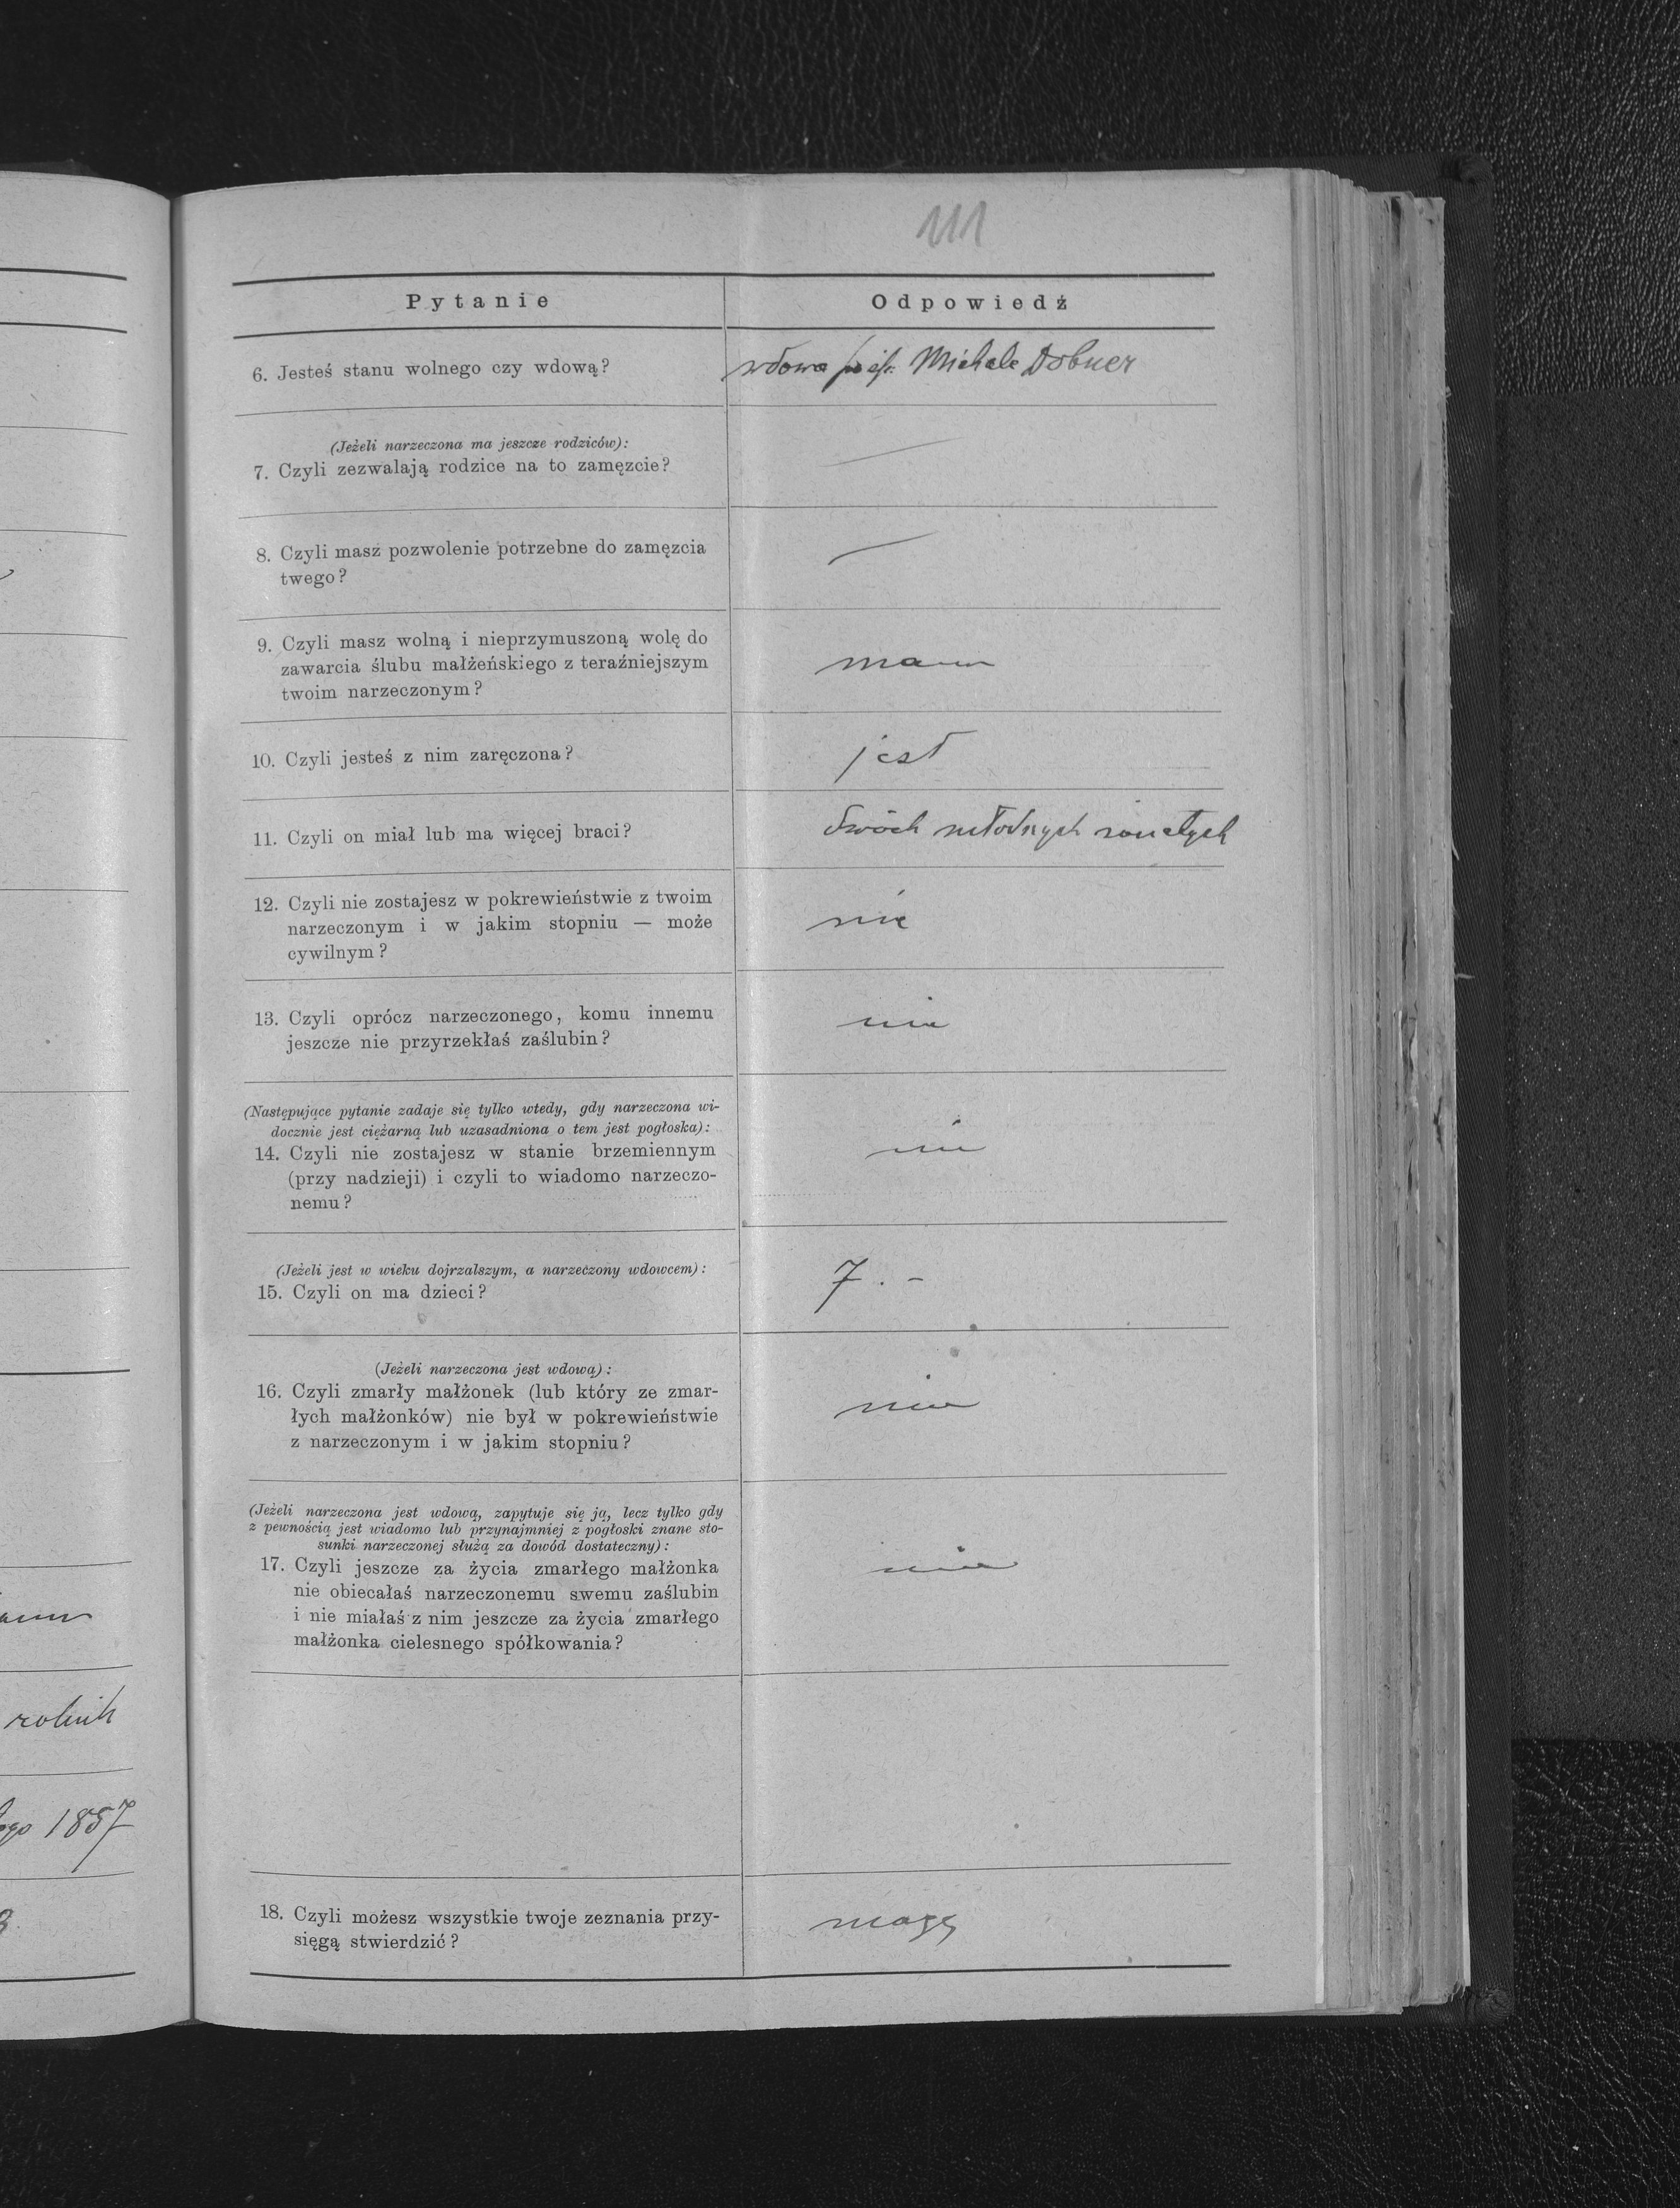 111
Pytanie
Odpowiedź
6. Jesteś stanu wolnego czy wdową?
wdowa po śp. Michale Dobner
(Jeżeli narzeczona ma jeszcze rodziców):
7. Czyli zezwalają rodzice na to zamęzcie?
8. Czyli masz pozwolenie potrzebne do zamęzcia
twego?
9. Czyli masz wolną i nieprzymuszoną wolę do
zawarcia ślubu małżeńskiego z teraźniejszym
twoim narzeczonym?
mam
10. Czyli jesteś z nim zaręczona?
jest
11. Czyli on miał lub ma więcej braci?
dwóch młodszych
12. Czyli nie zostajesz w pokrewieństwie z twoim
narzeczonym i w jakim stopniu — może
cywilnym?
nie
13. Czyli oprócz narzeczonego, komu innemu
jeszcze nie przyrzekłaś zaślubin?
nie
(Następujące pytanie zadaje się tylko wtedy, gdy narzeczona wi-
docznie jest ciężarną lub uzasadniona o tem jest pogłoska):
14. Czyli nie zostajesz w stanie brzemiennym
(przy nadzieji) i czyli to wiadomo narzeczo-
nemu?
nie
(Jeżeli jest w wieku dojrzalszym, a narzeczony wdowcem):
15. Czyli on ma dzieci?
7. -
(Jeżeli narzeczona jest wdową):
16. Czyli zmarły małżonek (lub który ze zmar-
łych małżonków) nie był w pokrewieństwie
z narzeczonym i w jakim stopniu?
nie
(Jeżeli narzeczona jest wdową, zapytuje się ją, lecz tylko gdy
z pewnością jest wiadomo lub przynajmniej z pogłoski znane sto-
sunki narzeczonej służą za dowód dostateczny):
17. Czyli jeszcze za życia zmarłego małżonka
nie obiecałaś narzeczonemu swemu zaślubin
i nie miałaś z nim jeszcze za życia zmarłego
małżonka cielesnego spółkowania?
nie
rolnik
1857
18. Czyli możesz wszystkie twoje zeznania przy-
sięgą stwierdzić?
mogę